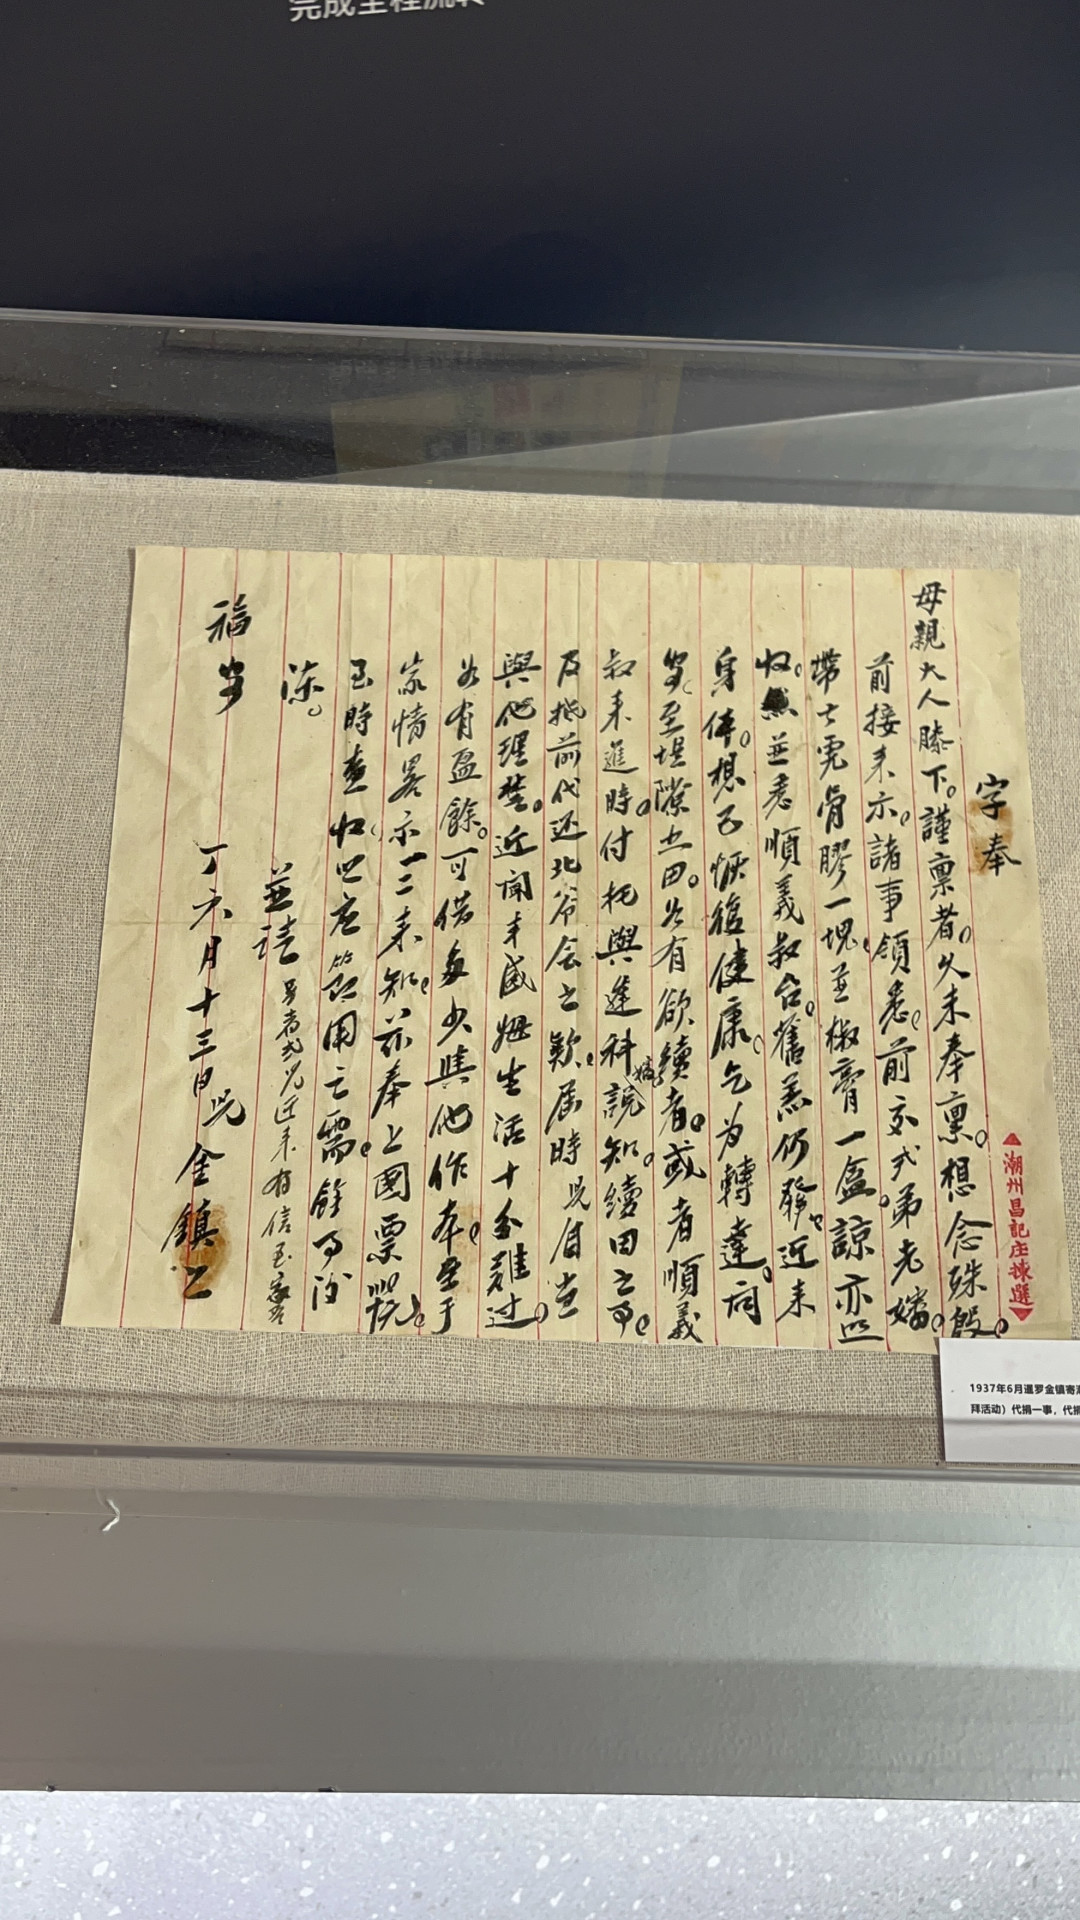 完成全程流转
字奉
母親大人膝下。謹禀者。久未奉禀。想念殊殷。
前接来示。諸事領悉。前交式弟老嬸。
帶士虎骨膠一塊。並椒膏一盒。諒亦照
收。並悉順義叔台。舊恙仍發。近来
身体。想已恢復健康。乞为轉達。詞
安。至堤隙之田。若有欲續者。或者順義
叔来進時。付托與進科嬸說知。續田之事。
及抵前代还北爷会之欵。屆時兒自当
與他理楚。近聞丰國姆生活十分難过。
若有盈餘。可借多少與他作本。至于
家情畧示一二来知。茲奉上國票
至時查收。以应節用之需。餘事後
陳。
並請
福安
另者式兄近来有信至家否
丁六月十三日兒金鎮上
潮州昌記庄揀選
1937年6月暹罗金镇寄
拜活动）代捐一事，代